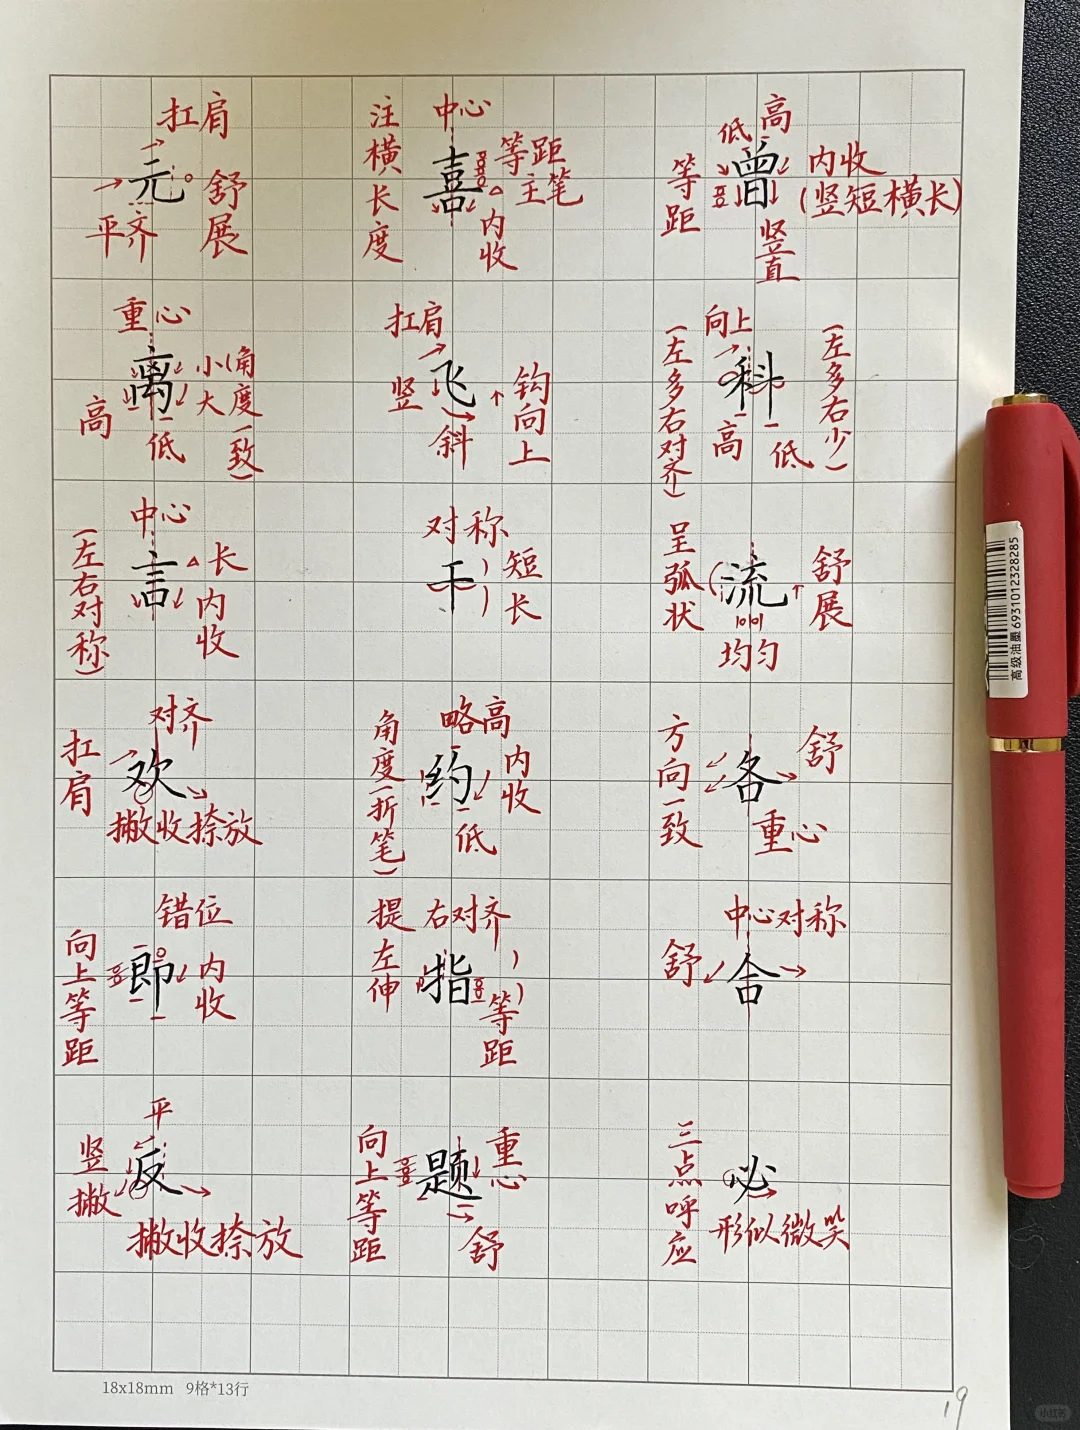 扛肩
元
舒展
平齐
注横长度
中心
喜
等距
主笔
内收
高
低
曾
等距
内收
(竖短横长)
竖直
重心
离
小大(角度一致)
高
低
扛肩
飞
竖
斜
钩向上
(左多右对齐)
向上
科
高
低
(左多右少)
中心
(左右对称)
言
长
内收
对称
干
短
长
呈弧状
流
舒展
均匀
对齐
扛肩
欢
撇收捺放
角度(折笔)
略高
约
内收
低
方向一致
各
舒
重心
错位
向上等距
即
内收
提左伸
右对齐
指
等距
中心对称
舒
舍
平
竖撇
返
撇收捺放
向上等距
题
重心
舒
三点呼应
必
形似微笑
18x18mm 9格*13行
19
高级油墨 6931012328285
小红书